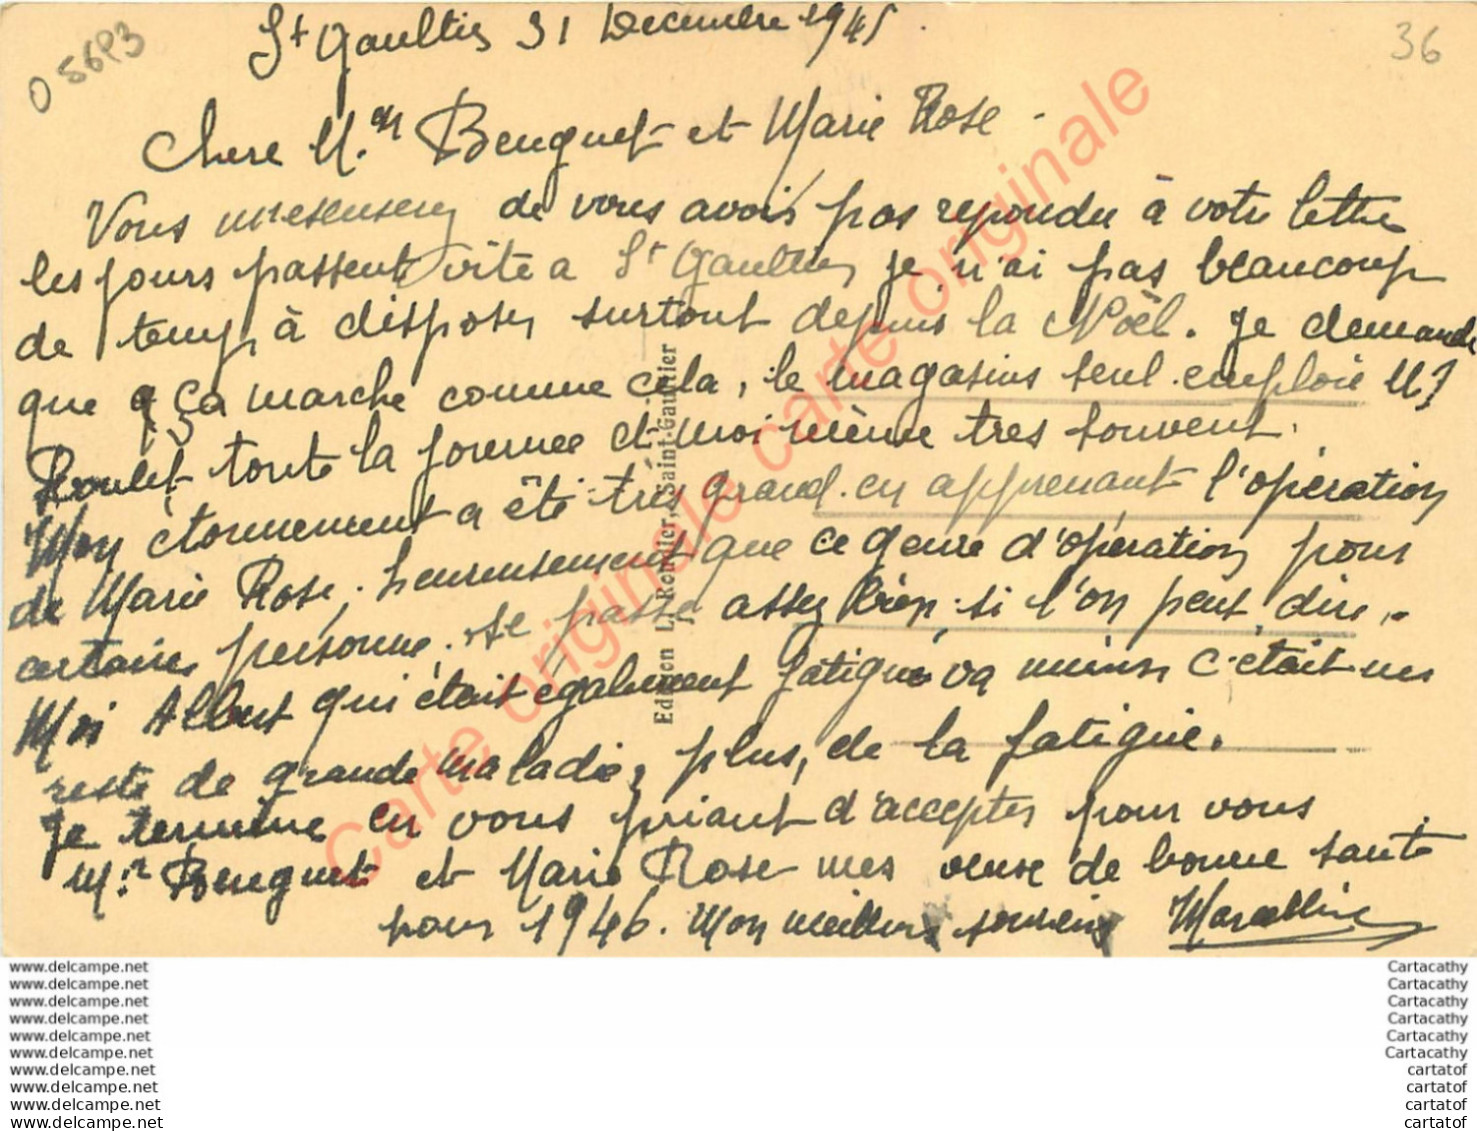 O 5693
36
St Gaultier 31 Decembre 1945.
Chere M.en Benguet et Marie Rose -
Vous m'exenserez de vous avoir pas repondu à votre lettre
les jours passent vite a St Gaultier je n'ai pas beaucoup
de temp à disposer surtout depuis la Noël. Je demande
que q ça marche comme cela, le magasins seul emploie Mr
Roulet toute la journee et moi même tres souvent.
Mon étonnement a été très grand en apprenant l'opération
de Marie Rose, heureusement que ce genre d'opération pour
certaines personne se passe assez bien si l'on peut dire.
Moi Albert qui était également fatigué va mieux c'était un
reste de grande maladie, plus, de la fatigue.
Je termine en vous priant d'accepter pour vous
M.en Benguet et Marie Rose mes veux de bonne santé
pour 1946. Mon meilleurs souvenir Marcelline
Edition L. Roudier, Saint-Gaultier
Carte originale carte originale carte originale
www.delcampe.net
www.delcampe.net
www.delcampe.net
www.delcampe.net
www.delcampe.net
www.delcampe.net
www.delcampe.net
www.delcampe.net
www.delcampe.net
www.delcampe.net
Cartacathy
Cartacathy
Cartacathy
Cartacathy
Cartacathy
Cartacathy
cartatof
cartatof
cartatof
cartatof